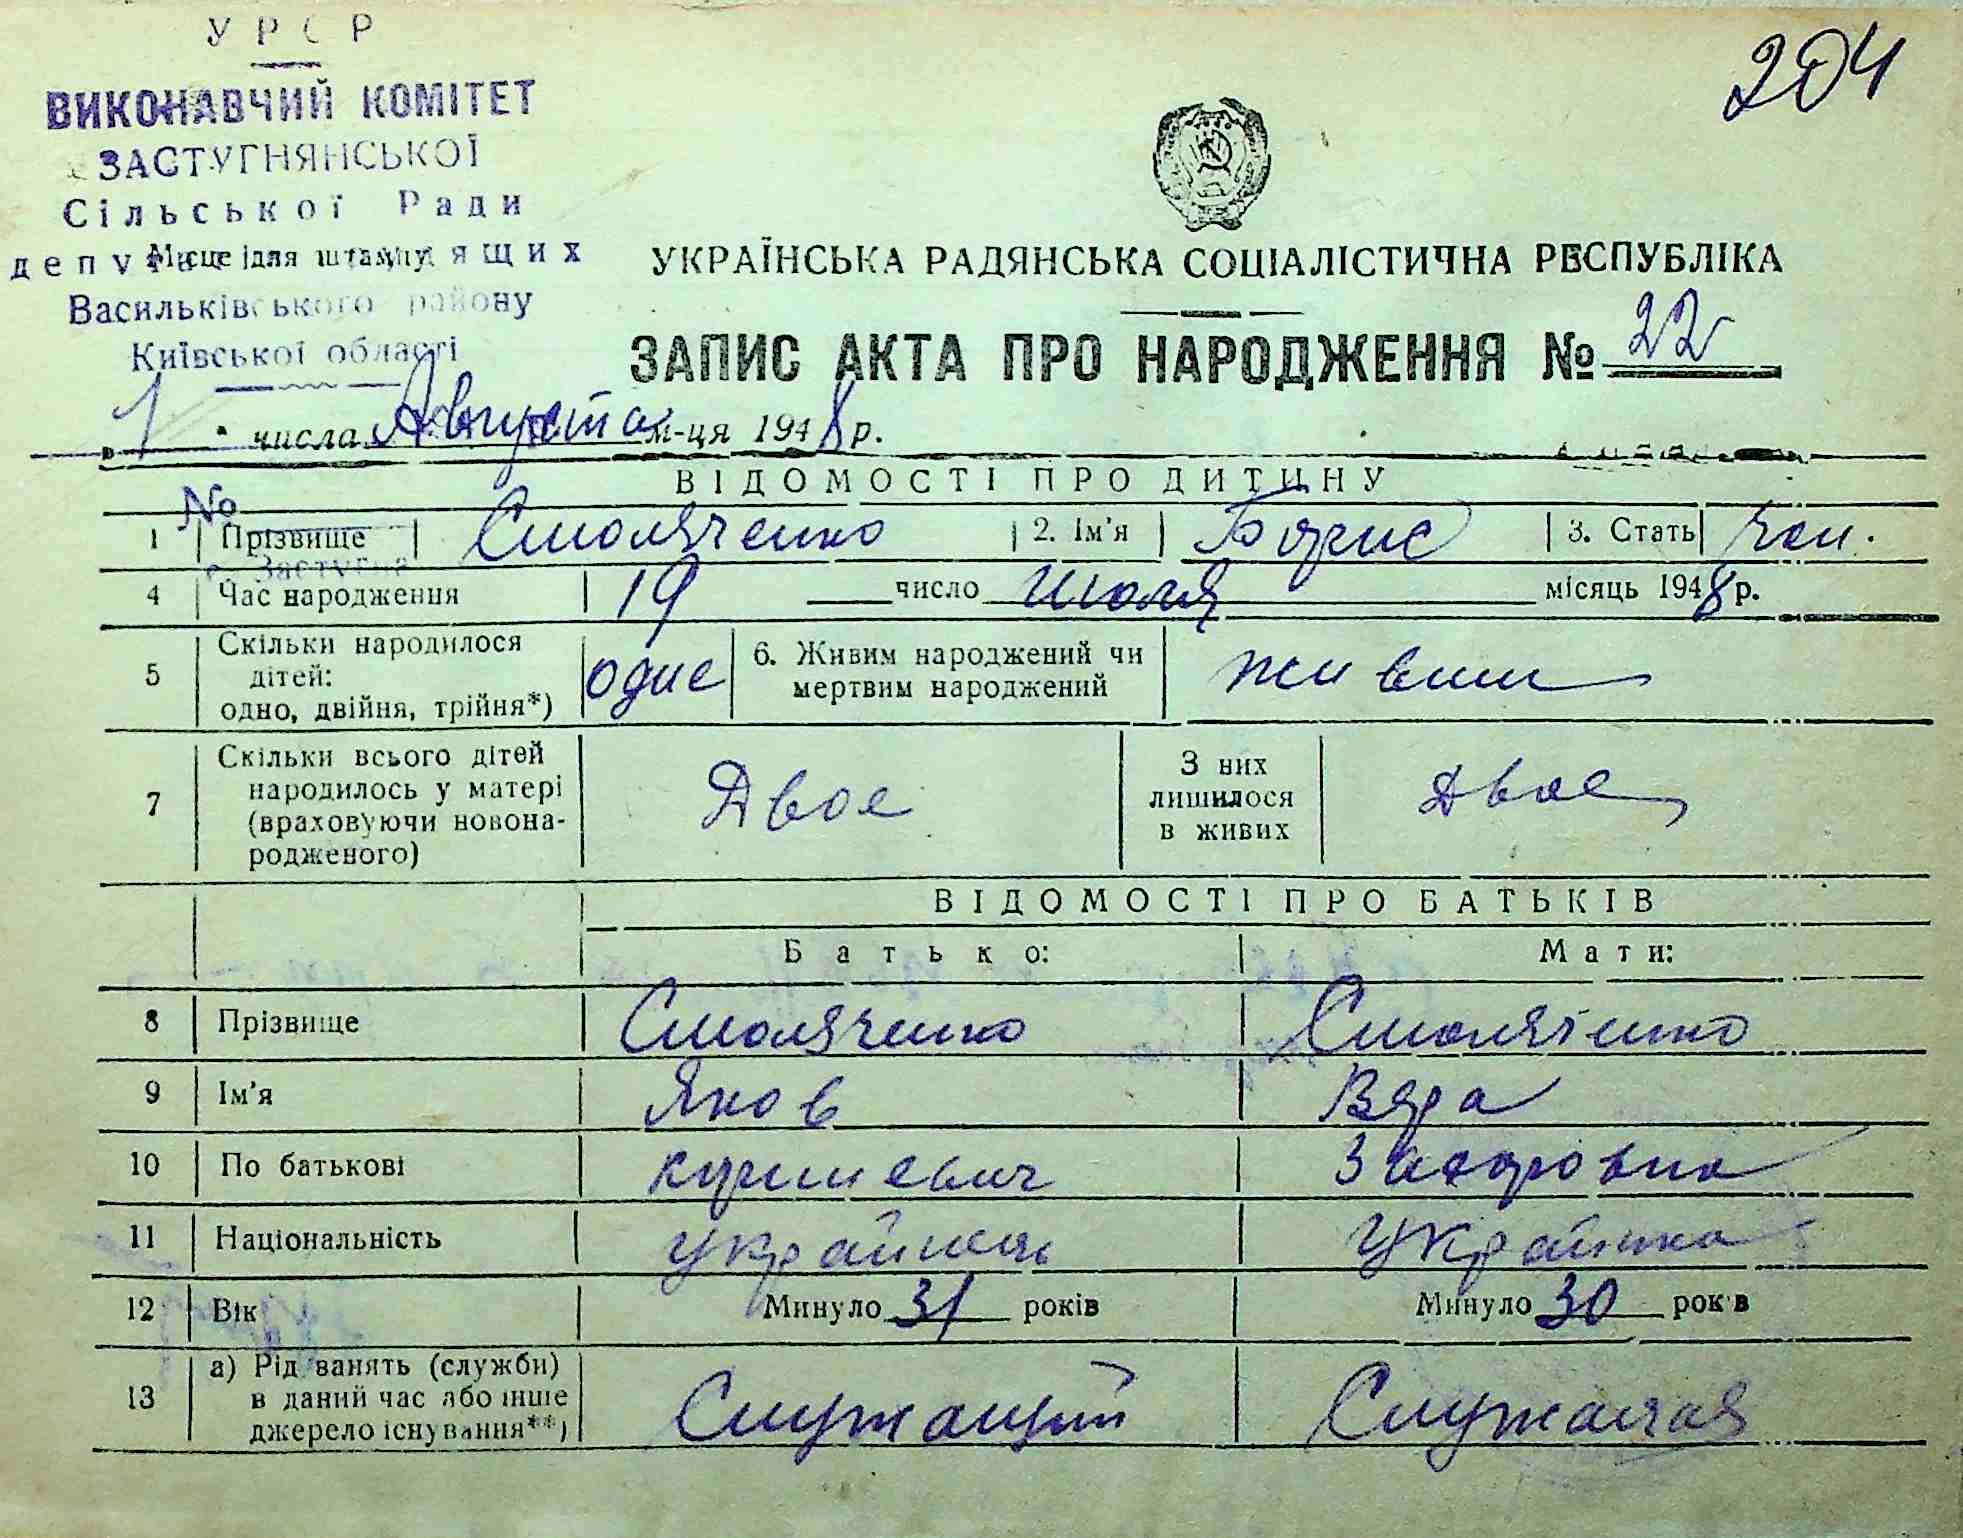 204
УРСР
ВИКОНАВЧИЙ КОМІТЕТ
ЗАСТУГНЯНСЬКОЇ
Сільської Ради
депутатів трудящих
Місце для штампу
Васильківського району
Київської області
УКРАЇНСЬКА РАДЯНСЬКА СОЦІАЛІСТИЧНА РЕСПУБЛІКА
ЗАПИС АКТА ПРО НАРОДЖЕННЯ № 22
"1" числа Августа м-ця 1948 р.
ВІДОМОСТІ ПРО ДИТИНУ
№
1 Прізвище Смоляченко 2. Ім'я Борис 3. Стать чол.
с. Застугна
4 Час народження 19 число Июля місяць 1948 р.
5 Скільки народилося дітей: одно, двійня, трійня*) одне 6. Живим народжений чи мертвим народжений живим
7 Скільки всього дітей народилось у матері (враховуючи новонародженого) Двое З них лишилося в живих Двое
ВІДОМОСТІ ПРО БАТЬКІВ
Батько: Мати:
8 Прізвище Смоляченко Смоляченко
9 Ім'я Яков Вера
10 По батькові
11 Національність украинец Украинка
12 Вік Минуло 31 років Минуло 30 років
13 а) Рід занять (служби) в даний час або інше джерело існування**) Служащий Служащая